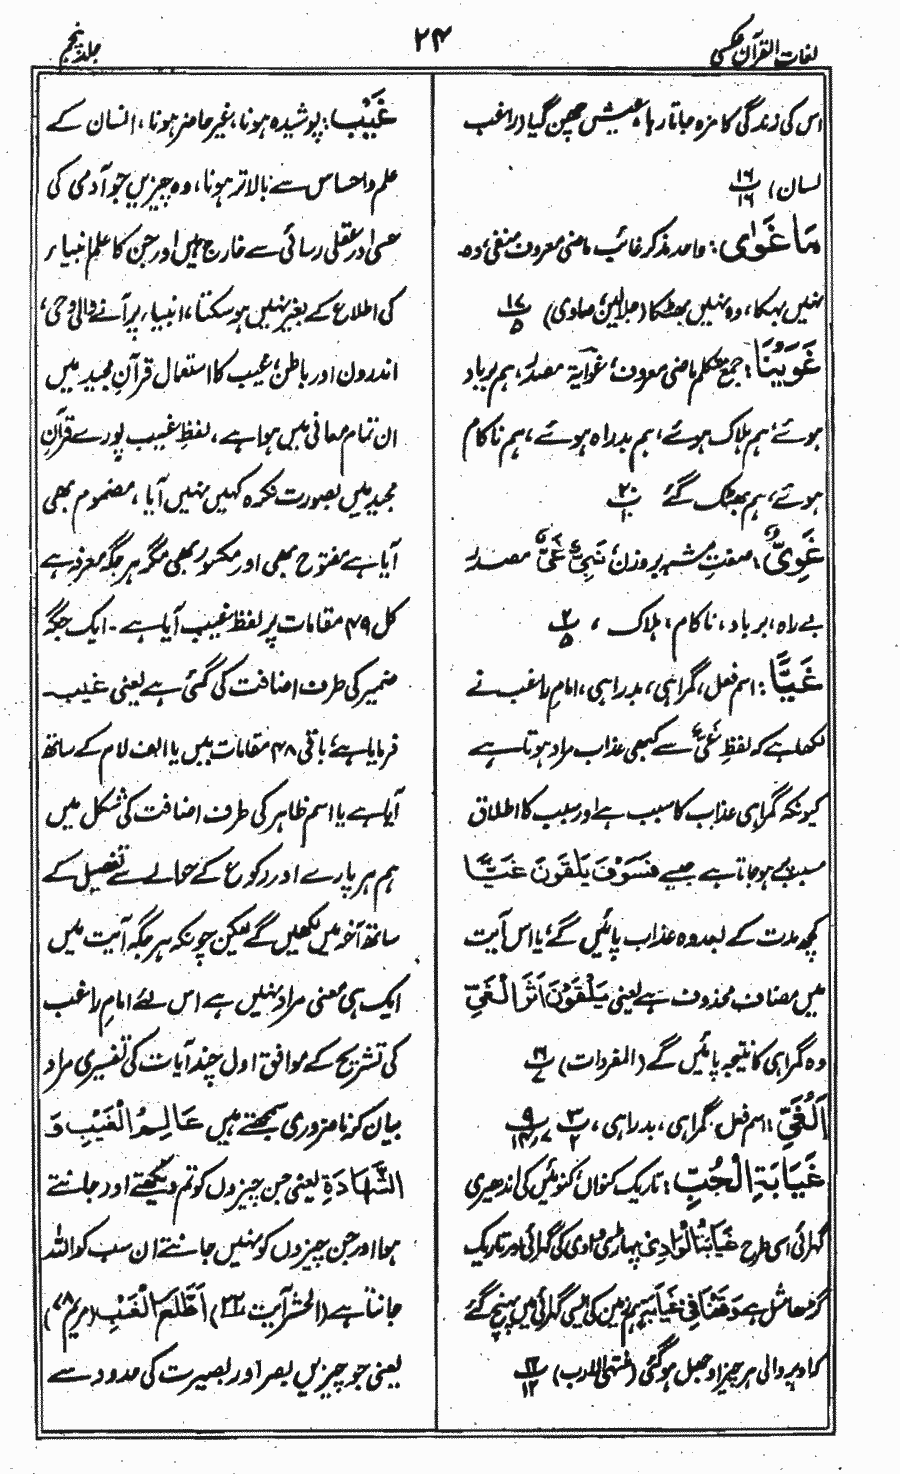 لغات القرآن عکسی
۲۴
جلد پنجم
اس کی زندگی کا مزہ جاتا رہا، عیش چھن گیا (راغب
لسان) ۱۶/۱۶
مَا غَوٰى: واحد مذکر غائب ماضی معروف منفی، وہ
نہیں بہکا، وہ نہیں بھٹکا (جلالین، صاوی) ۲۷/۵
غَوَيْنَا: جمع متکلم ماضی معروف، غوایۃ مصدر، ہم برباد
ہوئے، ہم ہلاک ہوئے، ہم بدراہ ہوئے، ہم ناکام
ہوئے، ہم بھٹک گئے ۲۰/۱۰
غَوِيٌّ: صفتِ مشبہ بروزن نَبِیٌّ غَیٌّ مصدر
بے راہ، برباد، ناکام، ہلاک، ۲۰/۵
غَيًّا: اسم فعل، گمراہی، بدراہی، امام راغب نے
لکھا ہے کہ لفظ غَیٌّ سے کبھی عذاب مراد ہوتا ہے
کیونکہ گمراہی عذاب کا سبب ہے اور سبب کا اطلاق
مسبب پر ہو جاتا ہے جیسے فَسَوْفَ يَلْقَوْنَ غَيًّا
کچھ مدت کے بعد وہ عذاب پائیں گے، یا اس آیت
میں مضاف محذوف ہے یعنی يَلْقَوْنَ اَثَرَ الْغَيِّ
وہ گمراہی کا نتیجہ پائیں گے (المفردات) ۱۶/۷
اَلْغَيِّ: اسم فعل، گمراہی، بدراہی، ۳/۲ ۹/۱۴،۷
غَيَابَةِ الْجُبِّ: تاریک کنواں، کنوئیں کی اندھیری
گہرائی اسی طرح غَيَابَةُ الْوَادِي پہاڑی وادی کی گہرائی اور تاریک
گڑھا مثل ہے وَقَعْنَا فِي غَيَابَةٍ ہم زمین کی ایسی گہرائی میں پہنچ گئے
کہ اوپر والی ہر چیز اوجھل ہو گئی (منتہی الارب) ۱۲/۱۲
غَيْب: پوشیدہ ہونا، غیر حاضر ہونا، انسان کے
علم و احساس سے بالاتر ہونا، وہ چیزیں جو آدمی کی
حسی اور عقلی رسائی سے خارج ہیں اور جن کا علم انبیاء
کی اطلاع کے بغیر نہیں ہو سکتا، انبیاء پر آنے والی وحی،
اندرون اور باطن، غیب کا استعمال قرآن مجید میں
ان تمام معانی میں ہوا ہے، لفظ غیب پورے قرآن
مجید میں بصورت نکرہ کہیں نہیں آیا، مضموم بھی
آیا ہے مفتوح بھی اور مکسور بھی مگر ہر جگہ معرفہ ہے
کل ۴۹ مقامات پر لفظ غیب آیا ہے۔ ایک جگہ
ضمیر کی طرف اضافت کی گئی ہے یعنی غیبہ
فرمایا ہے، باقی ۴۸ مقامات میں یا الف لام کے ساتھ
آیا ہے یا اسم ظاہر کی طرف اضافت کی شکل میں
ہم ہر پارے اور رکوع کے حوالے سے تفصیل کے
ساتھ آخر میں لکھیں گے لیکن چونکہ ہر جگہ آیت میں
ایک ہی معنی مراد نہیں ہے اس لئے امام راغب
کی تشریح کے موافق اول چند آیات کی تفسیری مراد
بیان کرنا ضروری سمجھتے ہیں عَالِمُ الْغَيْبِ وَ
الشَّهَادَةِ یعنی جن چیزوں کو تم دیکھتے اور جانتے
ہو اور جن چیزوں کو نہیں جانتے ان سب کو اللہ
جانتا ہے (الحشر آیت ۲۲) اَطَّلَعَ الْغَيْبَ (مریم ۷۸)
یعنی جو چیزیں بصر اور بصیرت کی حدود سے